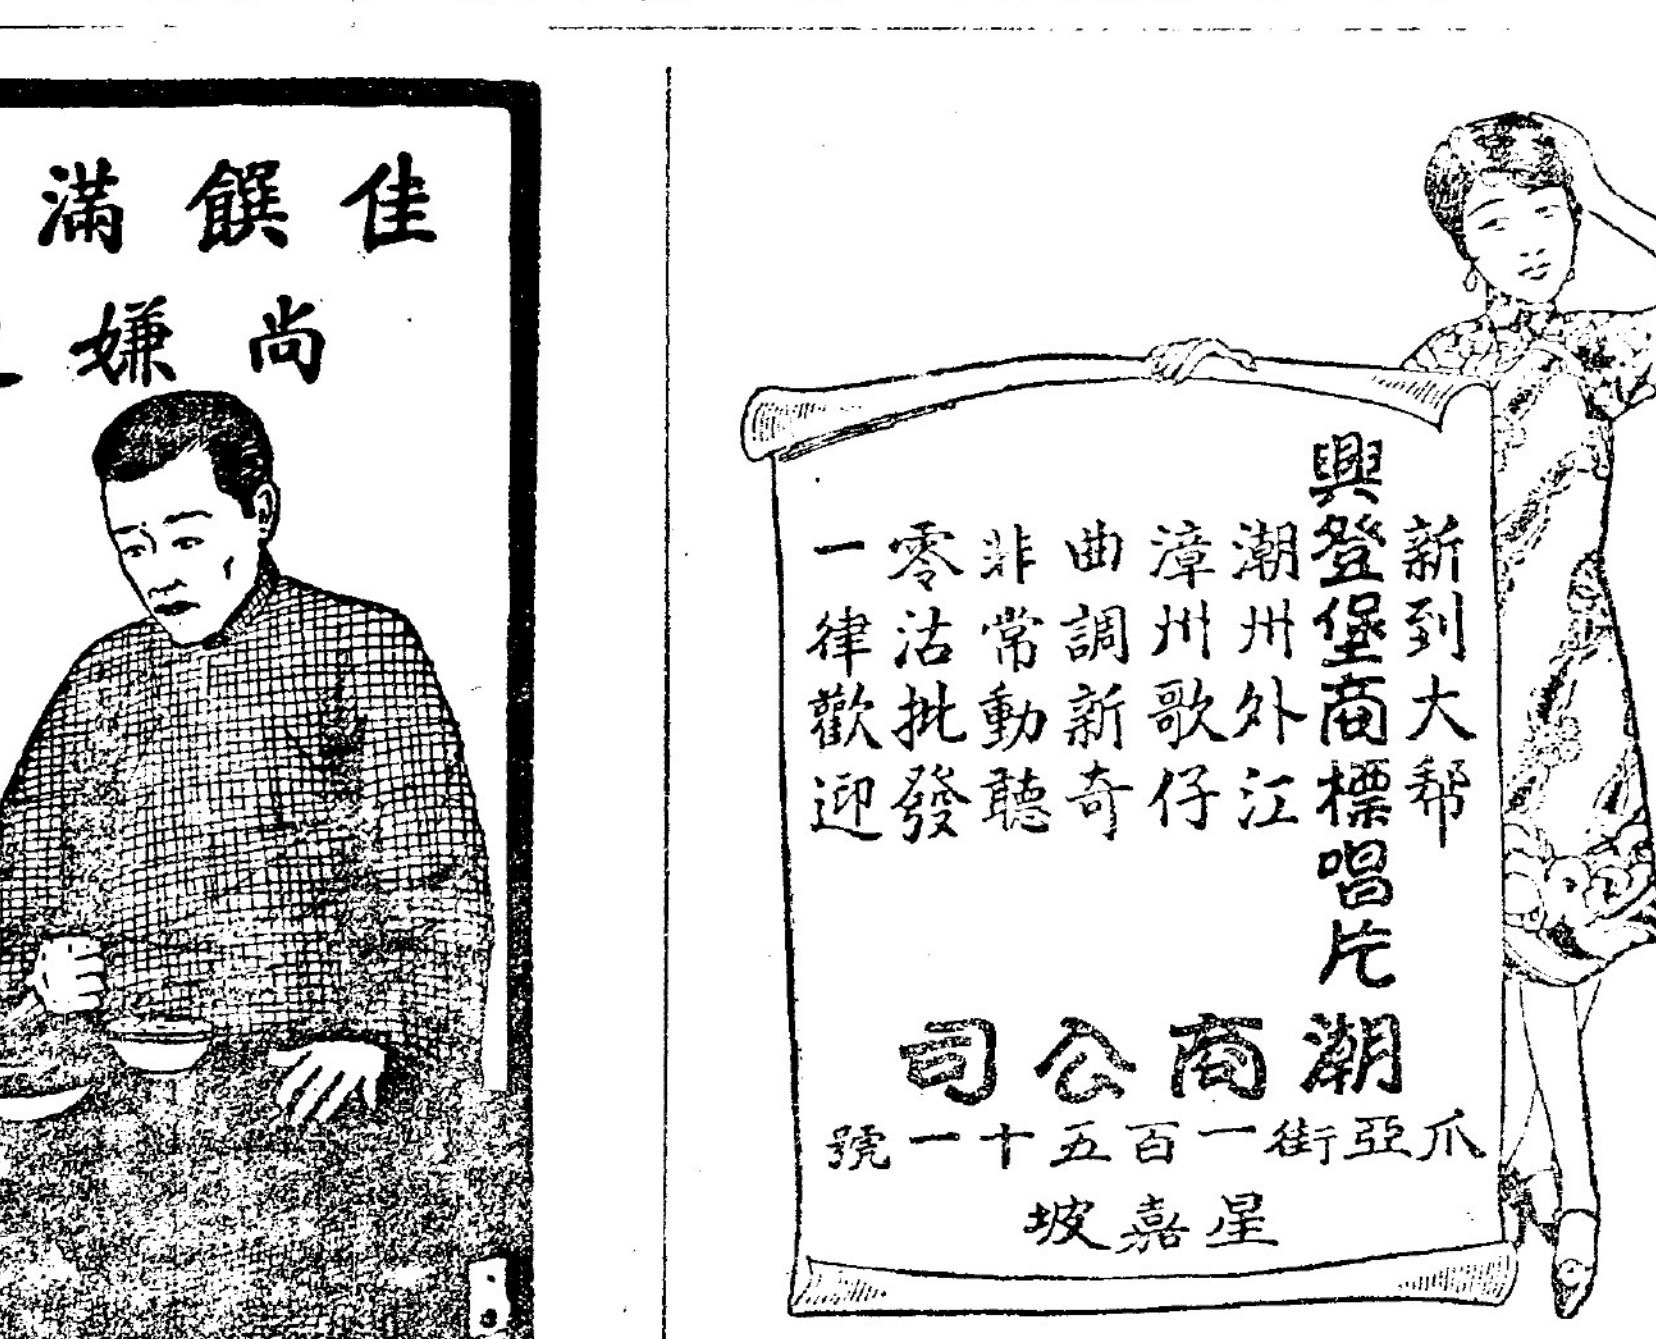 新到大幫
興登堡商標唱片
潮州外江
漳州歌仔
曲調新奇
非常動聽
零沽批發
一律歡迎
潮商公司
爪亞街一百五十一號
星嘉坡
佳饌滿
尚嫌